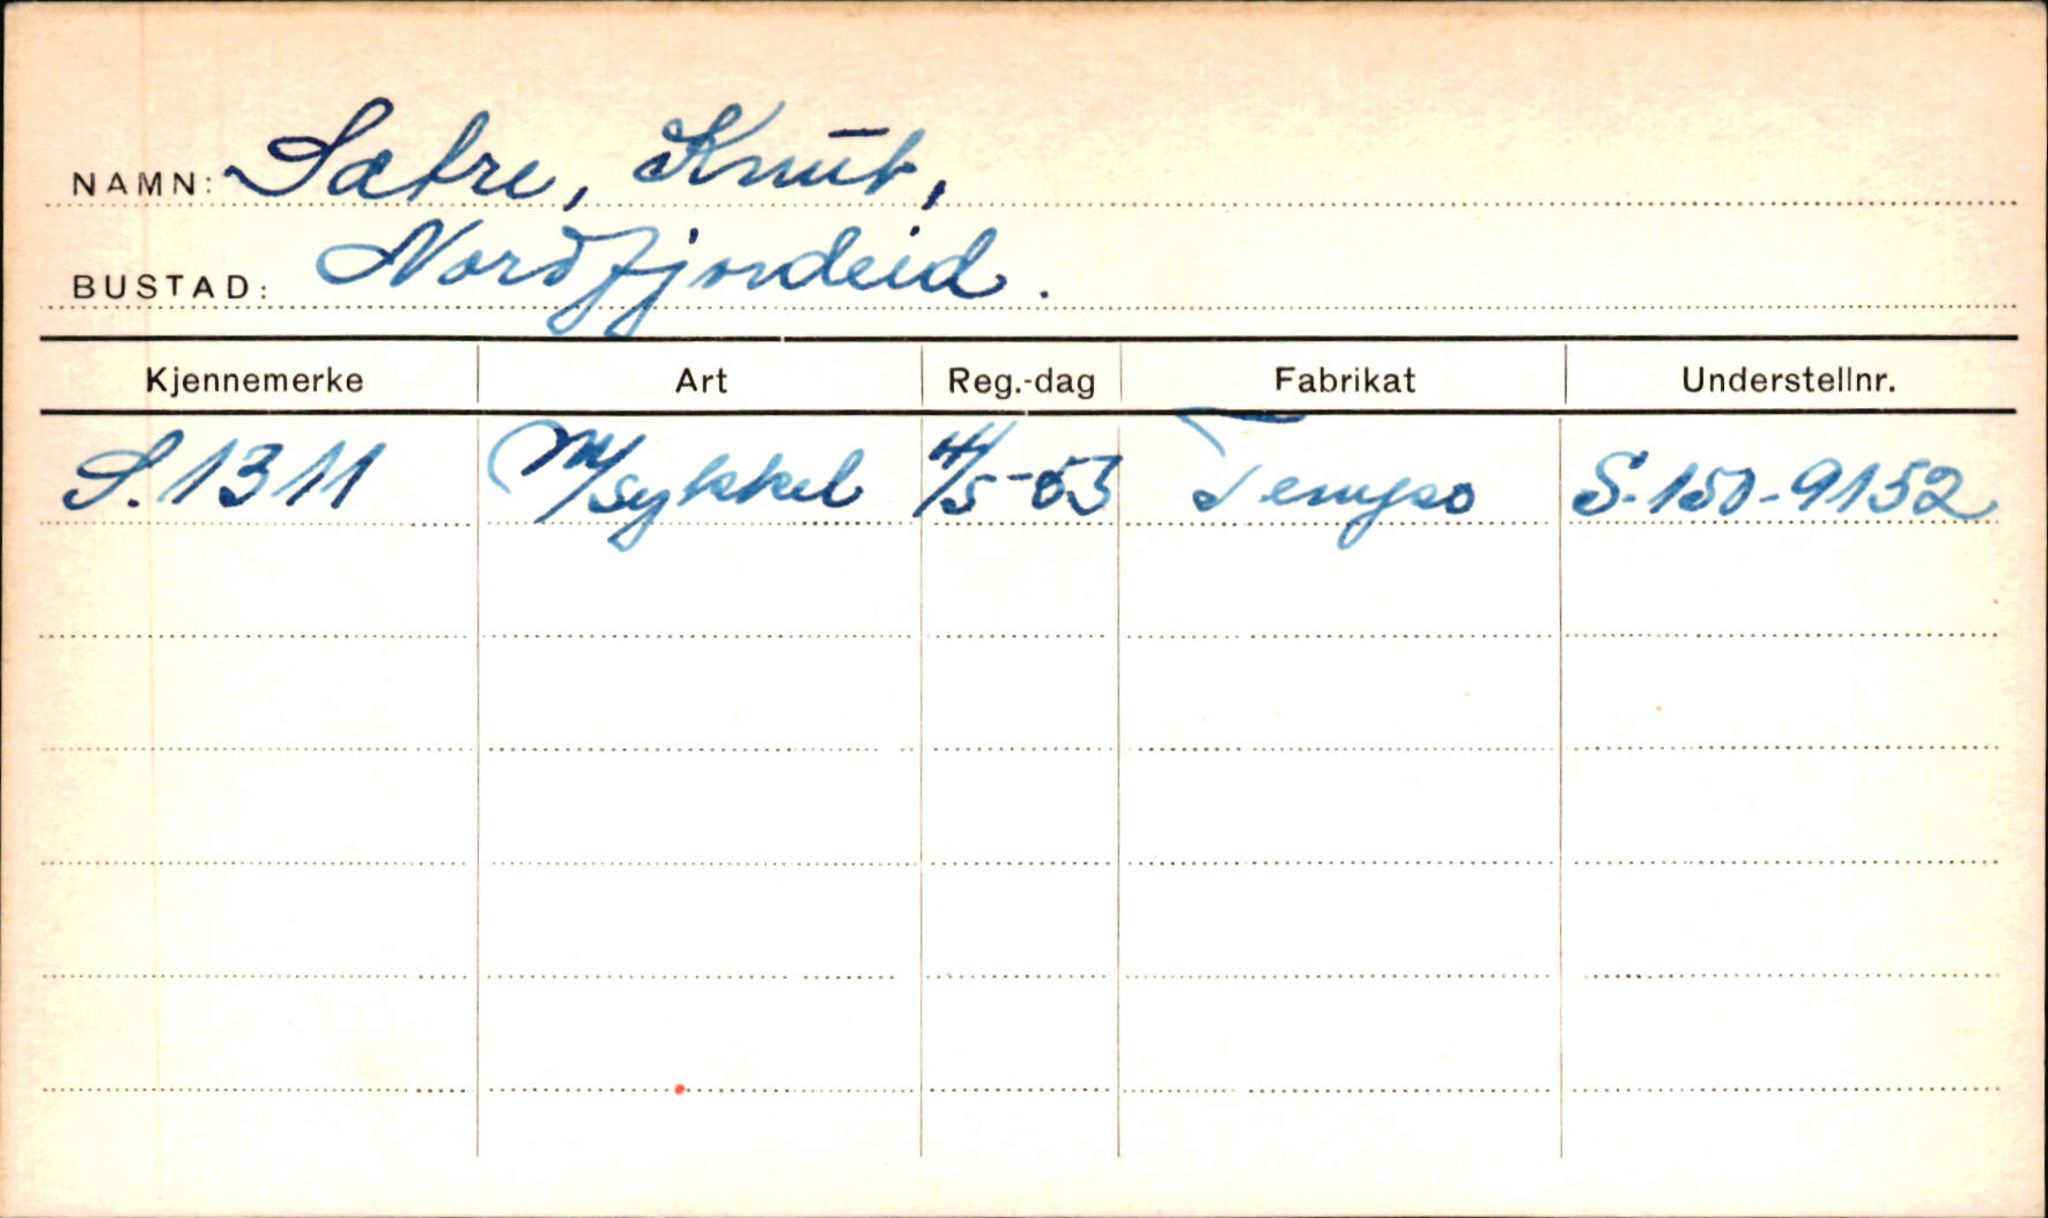 NAMN: Sætre, Knut,
BUSTAD: Nordfjordeid.
Kjennemerke Art Reg.-dag Fabrikat Understellnr.
S.1311 M/sykkel 4/5-53 Tempo S-150-9152